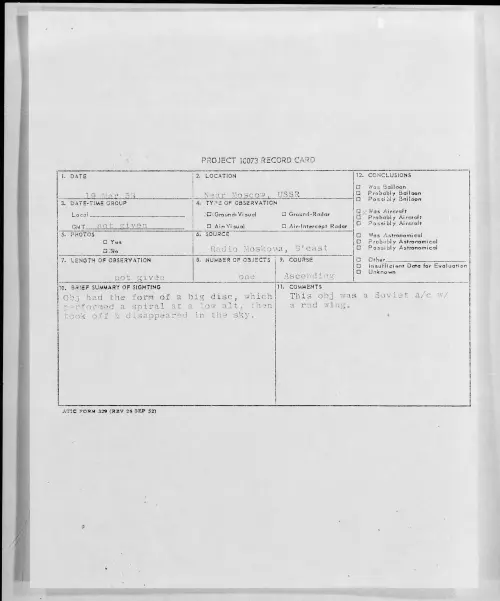 PROJECT 10073 RECORD CARD
1. DATE
2. LOCATION
Near Moscow, USSR
12. CONCLUSIONS
□ Was Balloon
□ Probably Balloon
□ Possibly Balloon
□ Was Aircraft
□ Probably Aircraft
□ Possibly Aircraft
□ Was Astronomical
□ Probably Astronomical
□ Possibly Astronomical
□ Other
□ Insufficient Data for Evaluation
□ Unknown
3. DATE-TIME GROUP
Local
GMT not given
4. TYPE OF OBSERVATION
□ Ground-Visual
□ Ground-Radar
□ Air-Visual
□ Air-Intercept Radar
5. PHOTOS
□ Yes
□ No
6. SOURCE
Radio Moskowa, B'cast
7. LENGTH OF OBSERVATION
not given
8. NUMBER OF OBJECTS
one
9. COURSE
Ascending
10. BRIEF SUMMARY OF SIGHTING
Obj had the form of a big disc, which
performed a spiral at a low alt, then
took off & disappeared in the sky.
11. COMMENTS
This obj was a Soviet a/c w/
a rnd wing.
ATIC FORM 329 (REV 26 SEP 52)